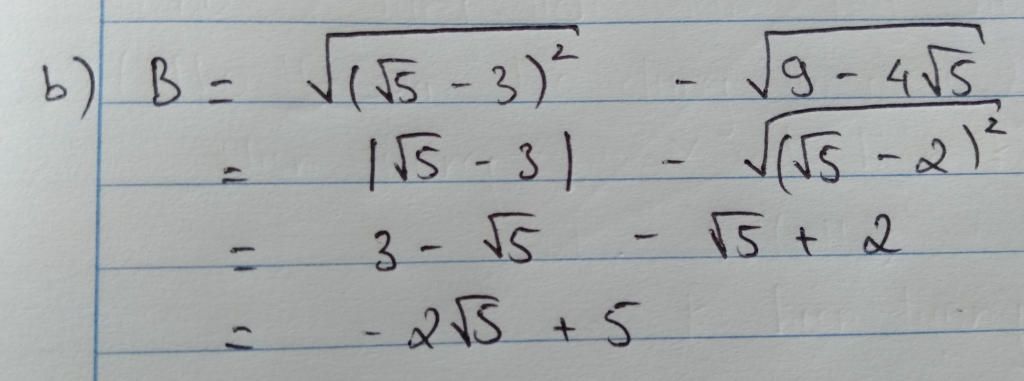 b) B = √((√5 - 3)²) - √(9 - 4√5)
= |√5 - 3| - √((√5 - 2)²)
= 3 - √5 - √5 + 2
= -2√5 + 5